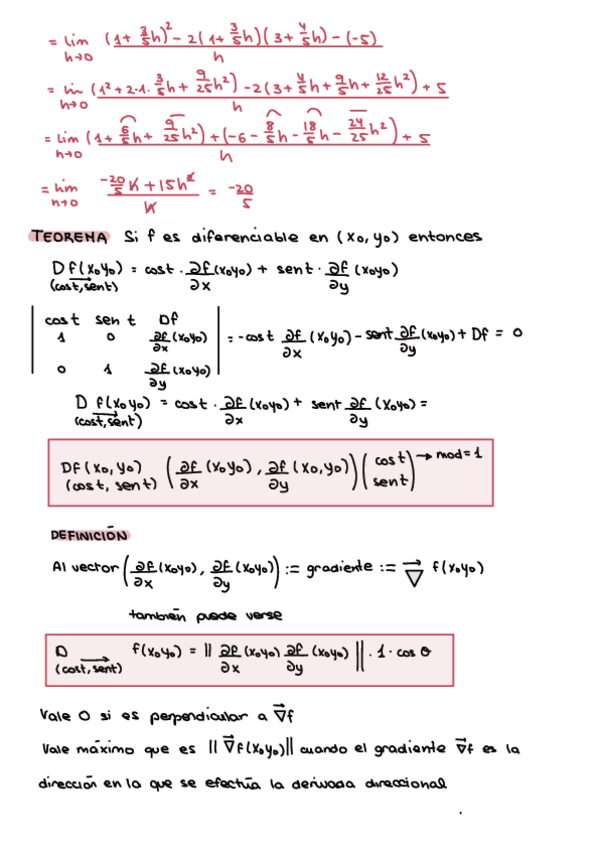 = lim h→0 ((1 + 3/5 h)² - 2(1 + 3/5 h)(3 + 4/5 h) - (-5)) / h
= lim h→0 ((1² + 2·1· 3/5 h + 9/25 h²) - 2(3 + 4/5 h + 9/5 h + 12/25 h²) + 5) / h
= lim h→0 ((1 + 6/5 h + 9/25 h²) + (-6 - 8/5 h - 18/5 h - 24/25 h²) + 5) / h
= lim h→0 (-20/5 h + 15h²) / h = -20/5
TEOREMA Si f es diferenciable en (x₀, y₀) entonces
Df(x₀y₀) = cost · ∂f/∂x (x₀y₀) + sent · ∂f/∂y (x₀y₀)
(cost, sent)
| cost sen t Df |
| 1 0 ∂f/∂x (x₀y₀) | = -cost ∂f/∂x (x₀y₀) - sent ∂f/∂y (x₀y₀) + Df = 0
| 0 1 ∂f/∂y (x₀y₀) |
D f(x₀y₀) = cost · ∂f/∂x (x₀y₀) + sent ∂f/∂y (x₀y₀) =
(cost, sent)
Df(x₀, y₀) (∂f/∂x (x₀y₀), ∂f/∂y (x₀, y₀)) (cost sent) → mod = 1
(cost, sent)
DEFINICIÓN
Al vector (∂f/∂x (x₀y₀), ∂f/∂y (x₀y₀)) := gradiente := ∇⃗ f(x₀y₀)
también puede verse
D f(x₀y₀) = || ∂f/∂x (x₀y₀) ∂f/∂y (x₀y₀) || · 1 · cos θ
(cost, sent)
Vale 0 si es perpendicular a ∇⃗f
Vale máximo que es || ∇⃗f(x₀y₀) || cuando el gradiente ∇⃗f es la
dirección en la que se efectúa la derivada direccional